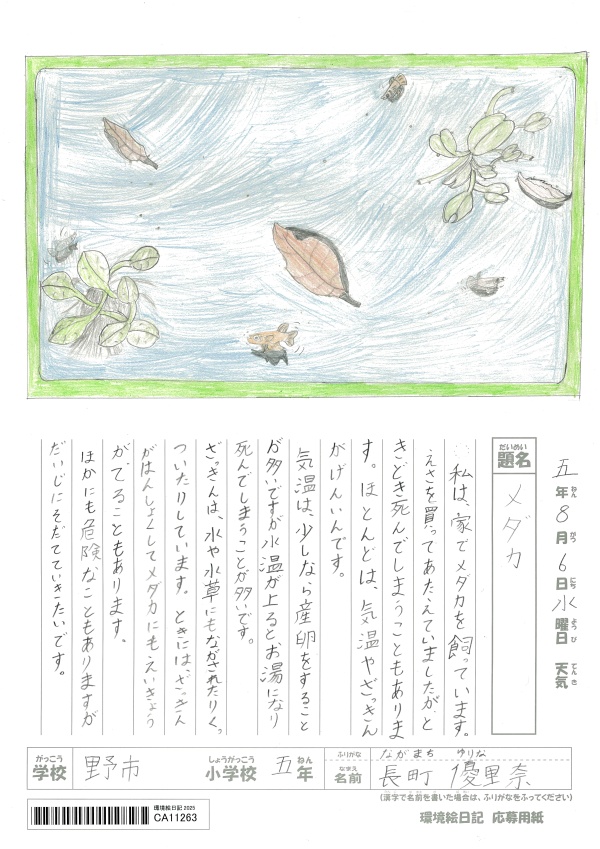 五年8月6日水曜日 天気
ねん がつ にち ようび てんき
だいめい
題名
メダカ
私は、家でメダカを飼っています。
えさを買ってあたえていましたが、と
きどき死んでしまうこともありま
す。ほとんどは、気温やざっきん
がげんいんです。
気温は、少しなら産卵をすること
が多いですが水温が上るとお湯になり
死んでしまうことが多いです。
ざっきんは、水や水草にもながされたりくっ
ついたりしています。ときには、ざっきん
がはんしょくしてメダカにもえいきょう
がでることもあります。
ほかにも危険なこともありますが
だいじにそだてていきたいです。
がっこう
学校
野市
しょうがっこう
小学校
五年
ねん
ふりがな
ながまち ゆりな
なまえ
名前
長町 優里奈
(漢字で名前を書いた場合は、ふりがなをふってください)
環境絵日記 2025
CA11263
環境絵日記 応募用紙